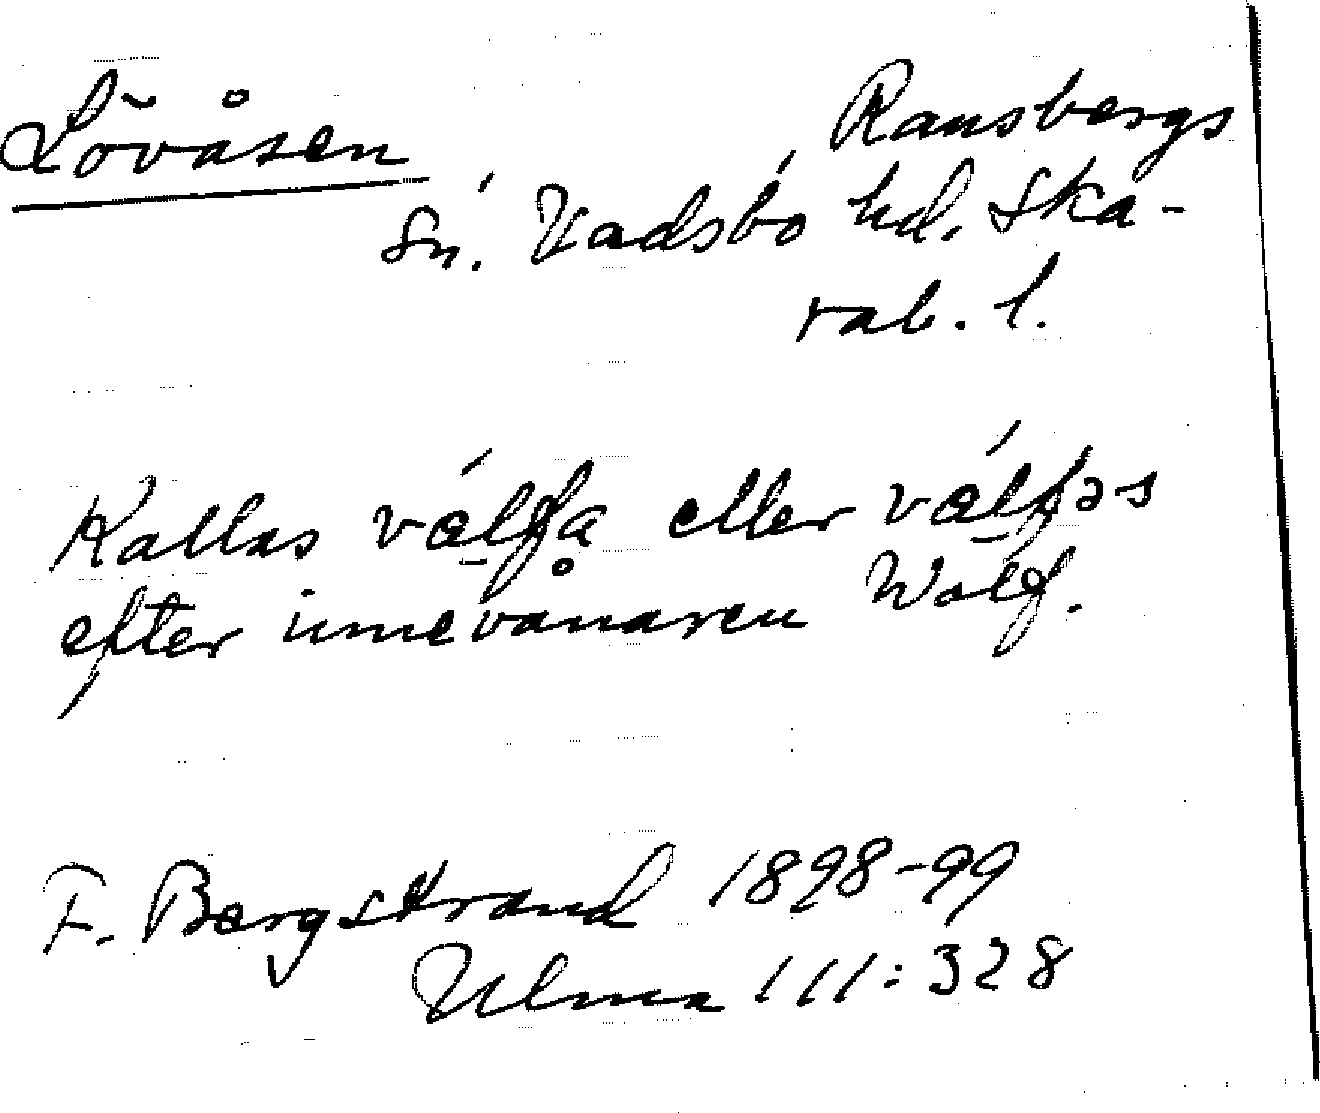 Lövåsen
Ransbergs
sn. Vadsbo hd. Ska-
rab. l.
Kallas vælfa eller vælfəs
efter innevånaren Wolf.
F. Bergstrand 1898-99
Ulma 111:328